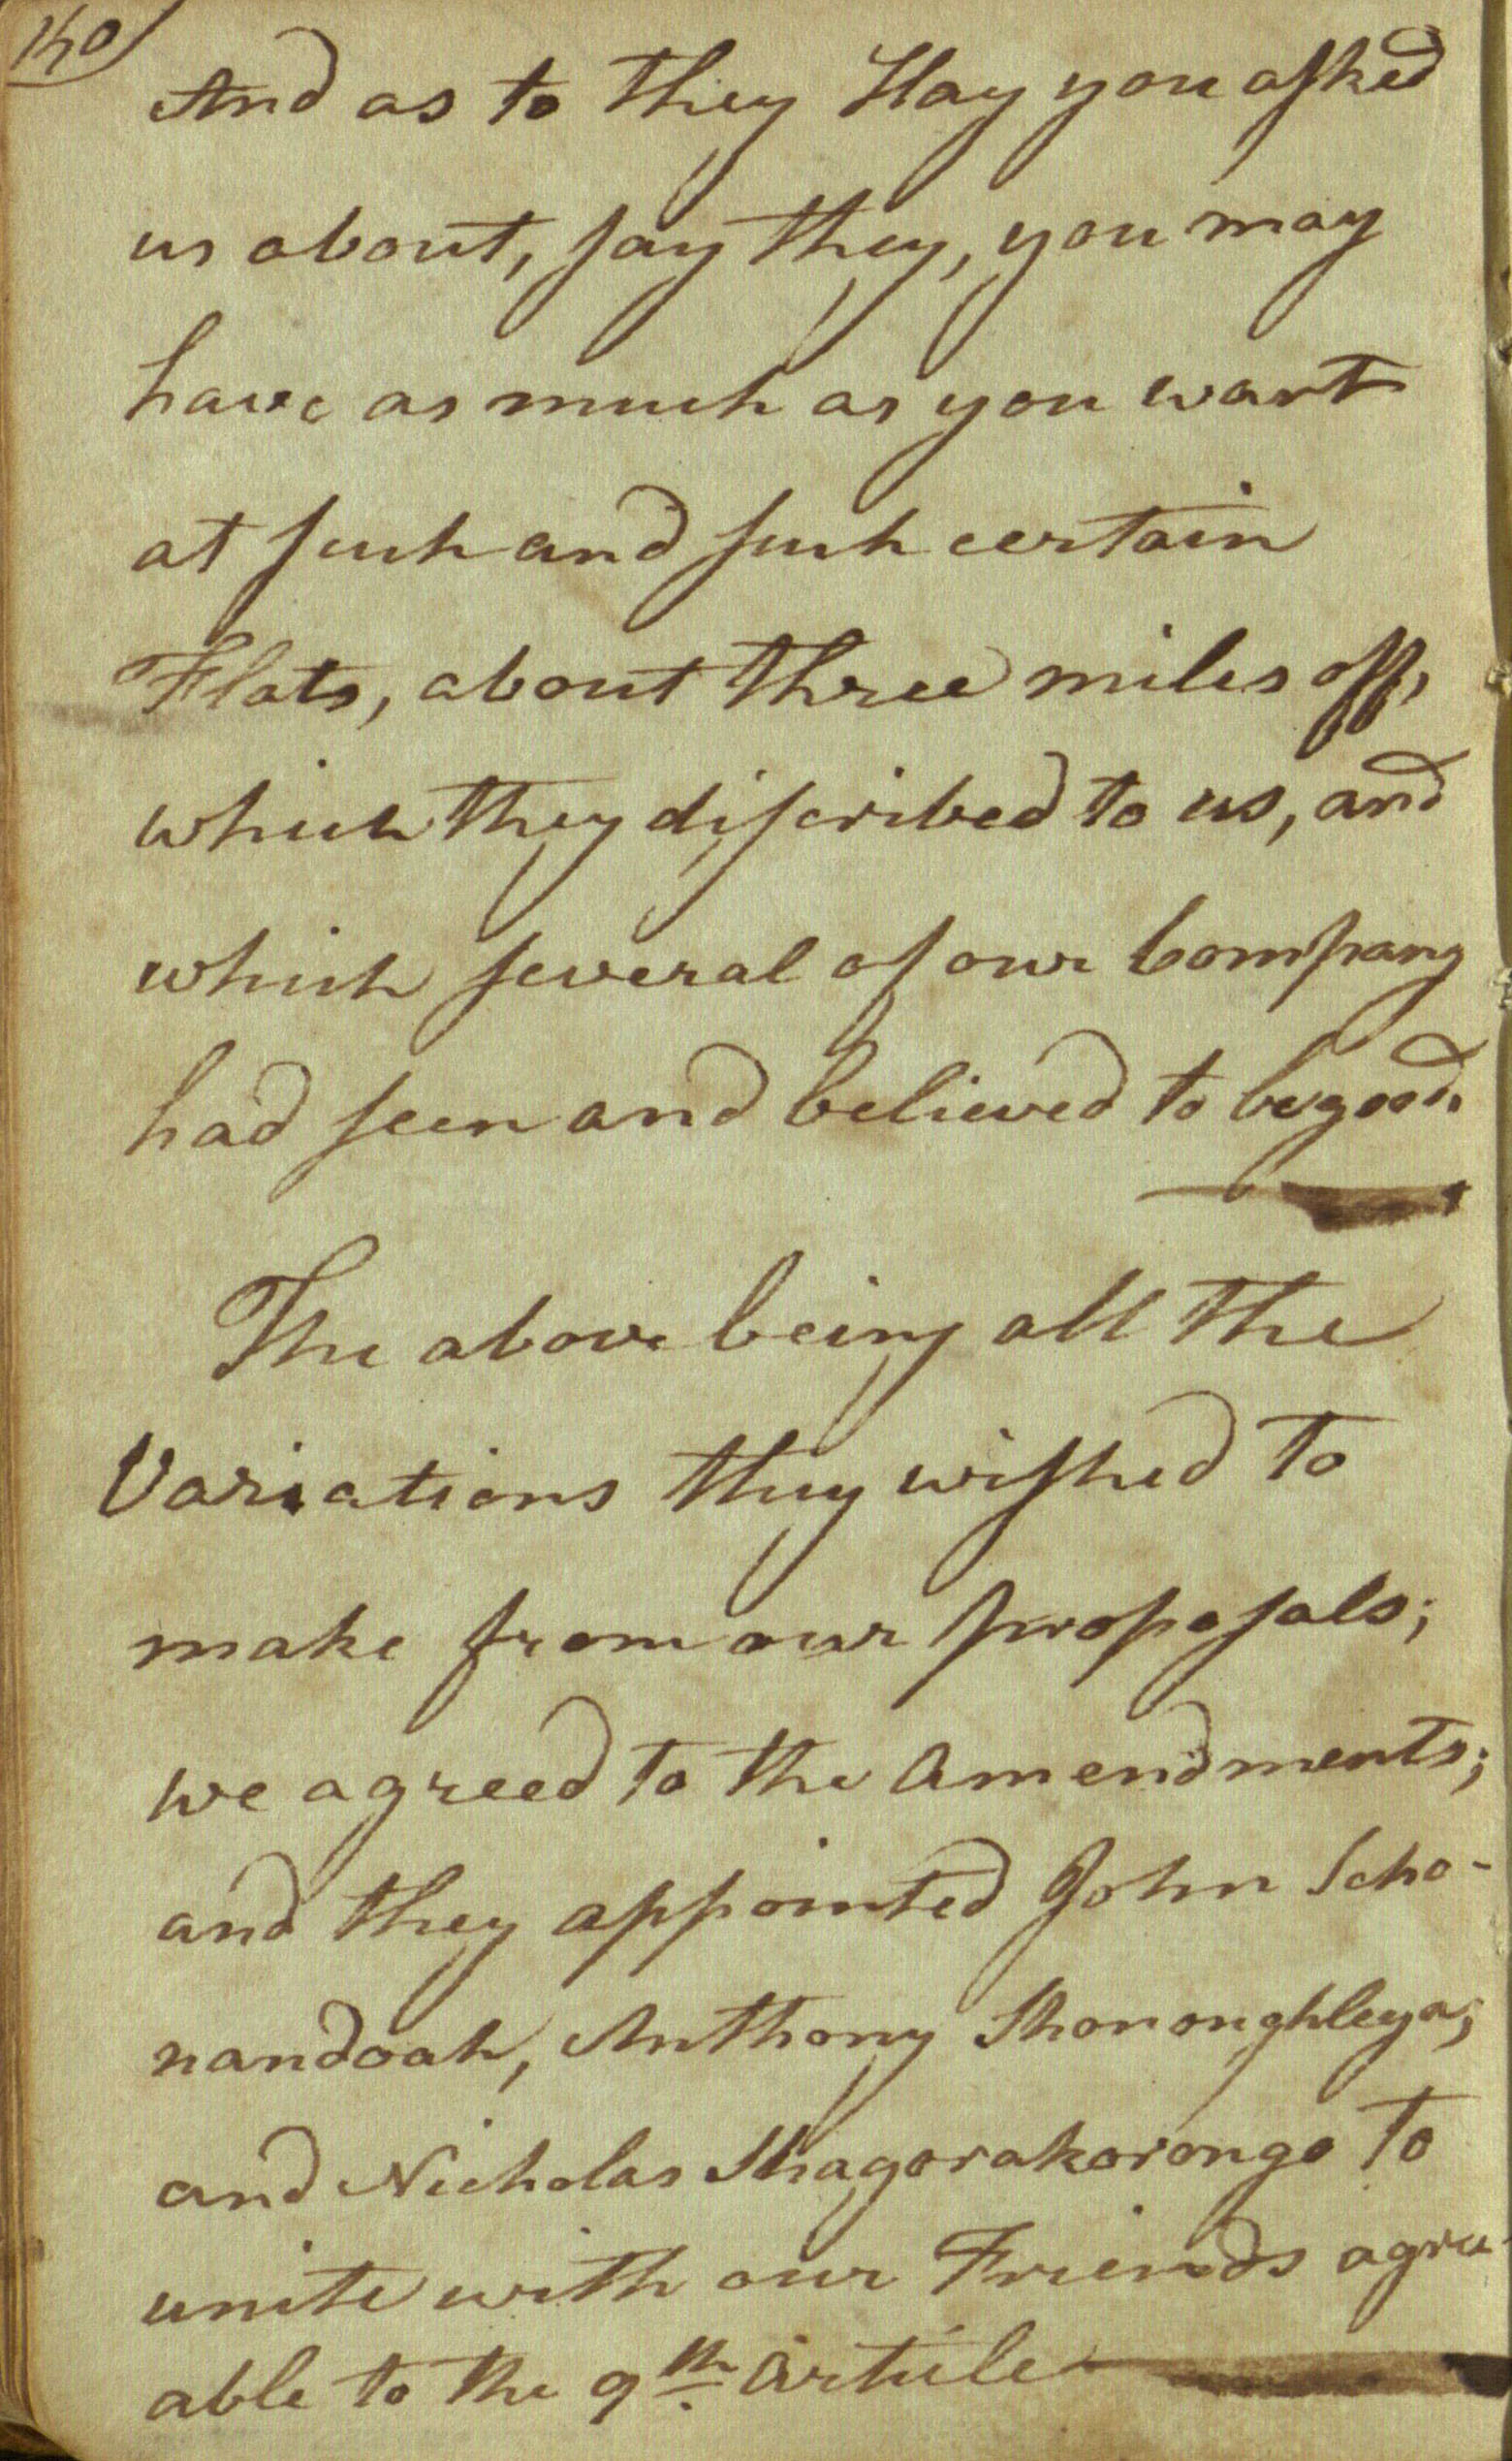 140
And as to they Hay you asked
us about, say they, you may
have as much as you want
at such and such certain
Flats, about three miles off,
which they discribed to us, and
which several of our Company
had seen and believed to be good.
The above being all the
Variations they wished to
make from our proposals;
we agreed to the Amendments;
and they appointed John Scho-
nandoah, Anthony Shonoughleya,
and Nicholas Shagorakorongo to
unite with our Friends agree-
able to the 9th Article